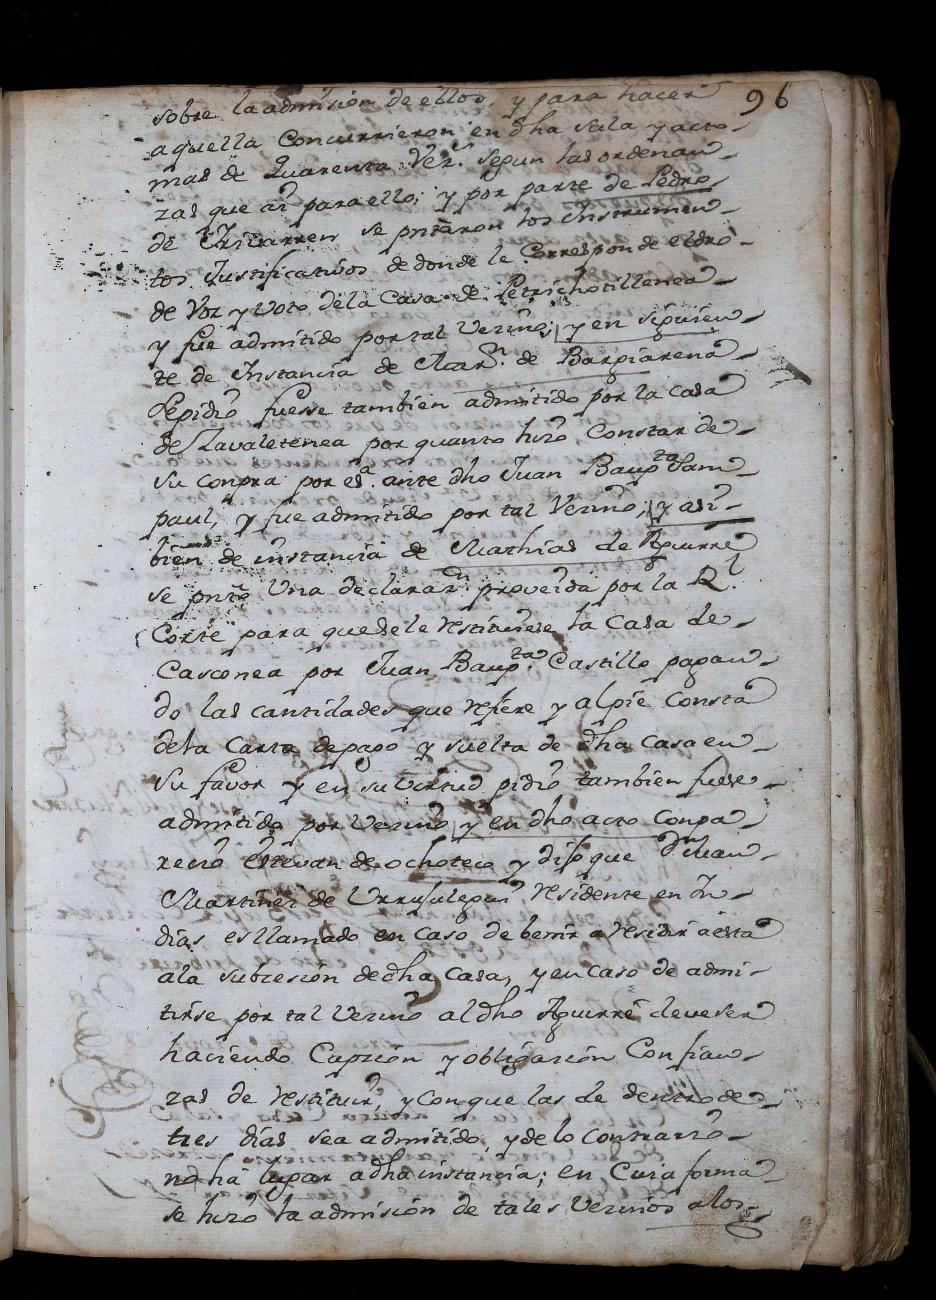 96
sobre la admision de ellos, y para hacer
aquella Concurrieron en dha sala y acto
mas de Quarenta Vez.s segun las ordenan
zas que ai para ello; y por parte de Pedro
de se pntaron los Instrumen
tos Justificativos de donde le Corresponde el dro
de Voz y Voto de la Casa de Petrichotillenea
y fue admitido por tal Vezino; y en siguien
te de Instancia de Mar.n de Bargiarena
se pidio fuesse tambien admitido por la casa
de Lavaletenea por quanto hizo Constar de
su conpra por es.a ante dho Juan Baup.ta Sam
paul, y fue admitido por tal Vezino; y asi
bien de instancia de Mathias de Aguirre
se pnto Una declaraz.n proveida por la R.l
Corte para que se le restituiese la Casa de
Casconea por Juan Baup.ta Castillo pagan
do las cantidades que refiere y al pie Consta
dela Carta de pago y suelta de dha casa en
su favor y en su Virtud pidio tambien fuese
admitido por Vezino y en dho acto Conpa
recio Estevan de ochoteco y dijo que Dn Juan
Martinez de Urrusulegui residente en In
dias es llamado en caso de benir a residir a esta
ala subcesion de dha Casa, y en caso de admi
tirse por tal Vezino al dho Aguirre deve ser
haciendo Capcion y obligacion Con fian
zas de restituir y con que las de dentro de
tres dias sea admitido, y de lo contrario
no ha lugar a dha instancia; en Cuia forma
se hizo la admision de tales Vezinos a los